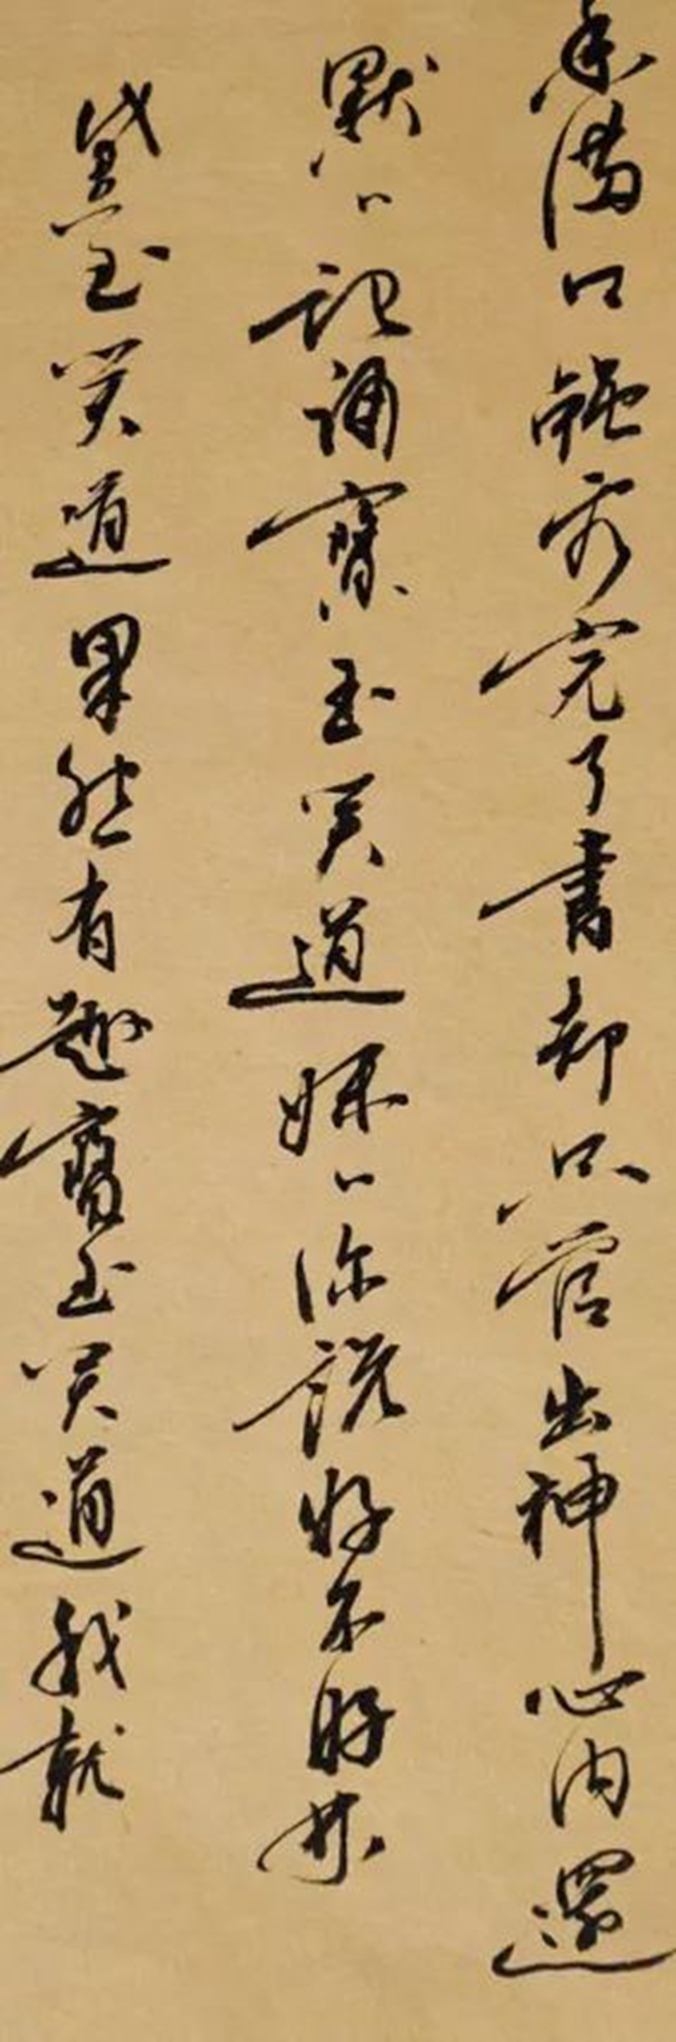 香滿口雖看完了書却只管出神心内還
默〻記誦寶玉笑道妹〻你說好不好林
黛玉笑道果然有趣寶玉笑道我就